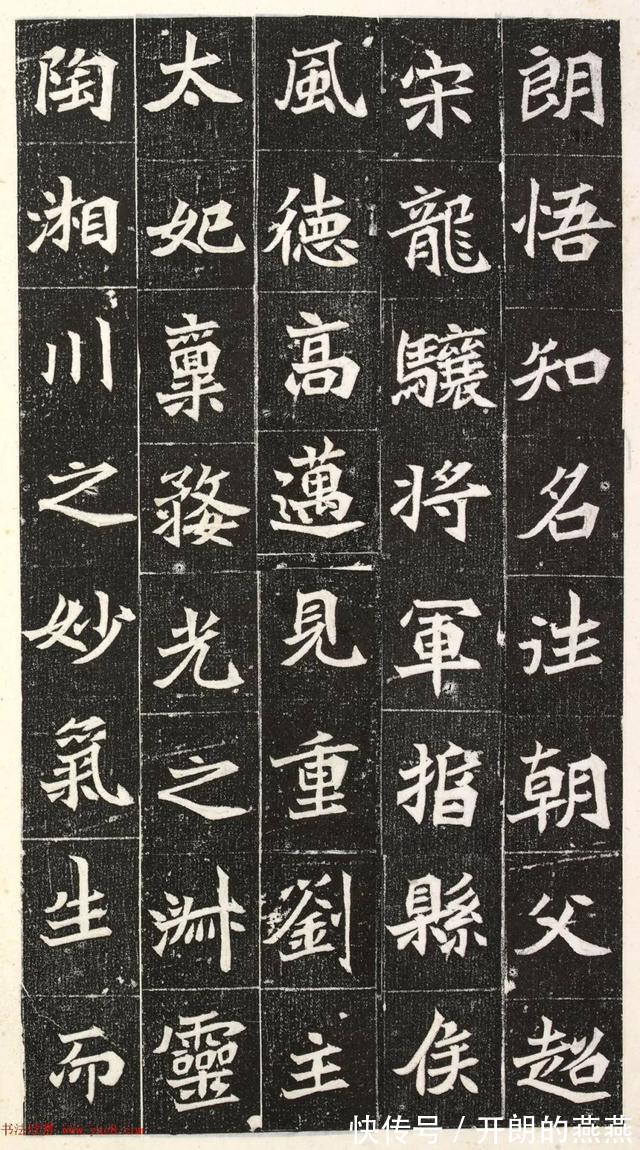 朗悟知名往朝父超
宋龍驤将軍指縣侯
風徳高邁見重劉主
太妃稟婺光之淑靈
陶湘川之妙氣生而
书法欣赏 www.yac8.com
快传号 / 开朗的燕燕